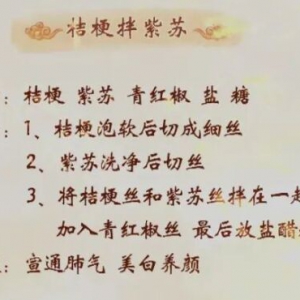 桔梗拌紫苏
：桔梗 紫苏 青红椒 盐 糖
：1、桔梗泡软后切成细丝
2、紫苏洗净后切丝
3、将桔梗丝和紫苏丝拌在一起
加入青红椒丝 最后放盐醋
：宣通肺气 美白养颜